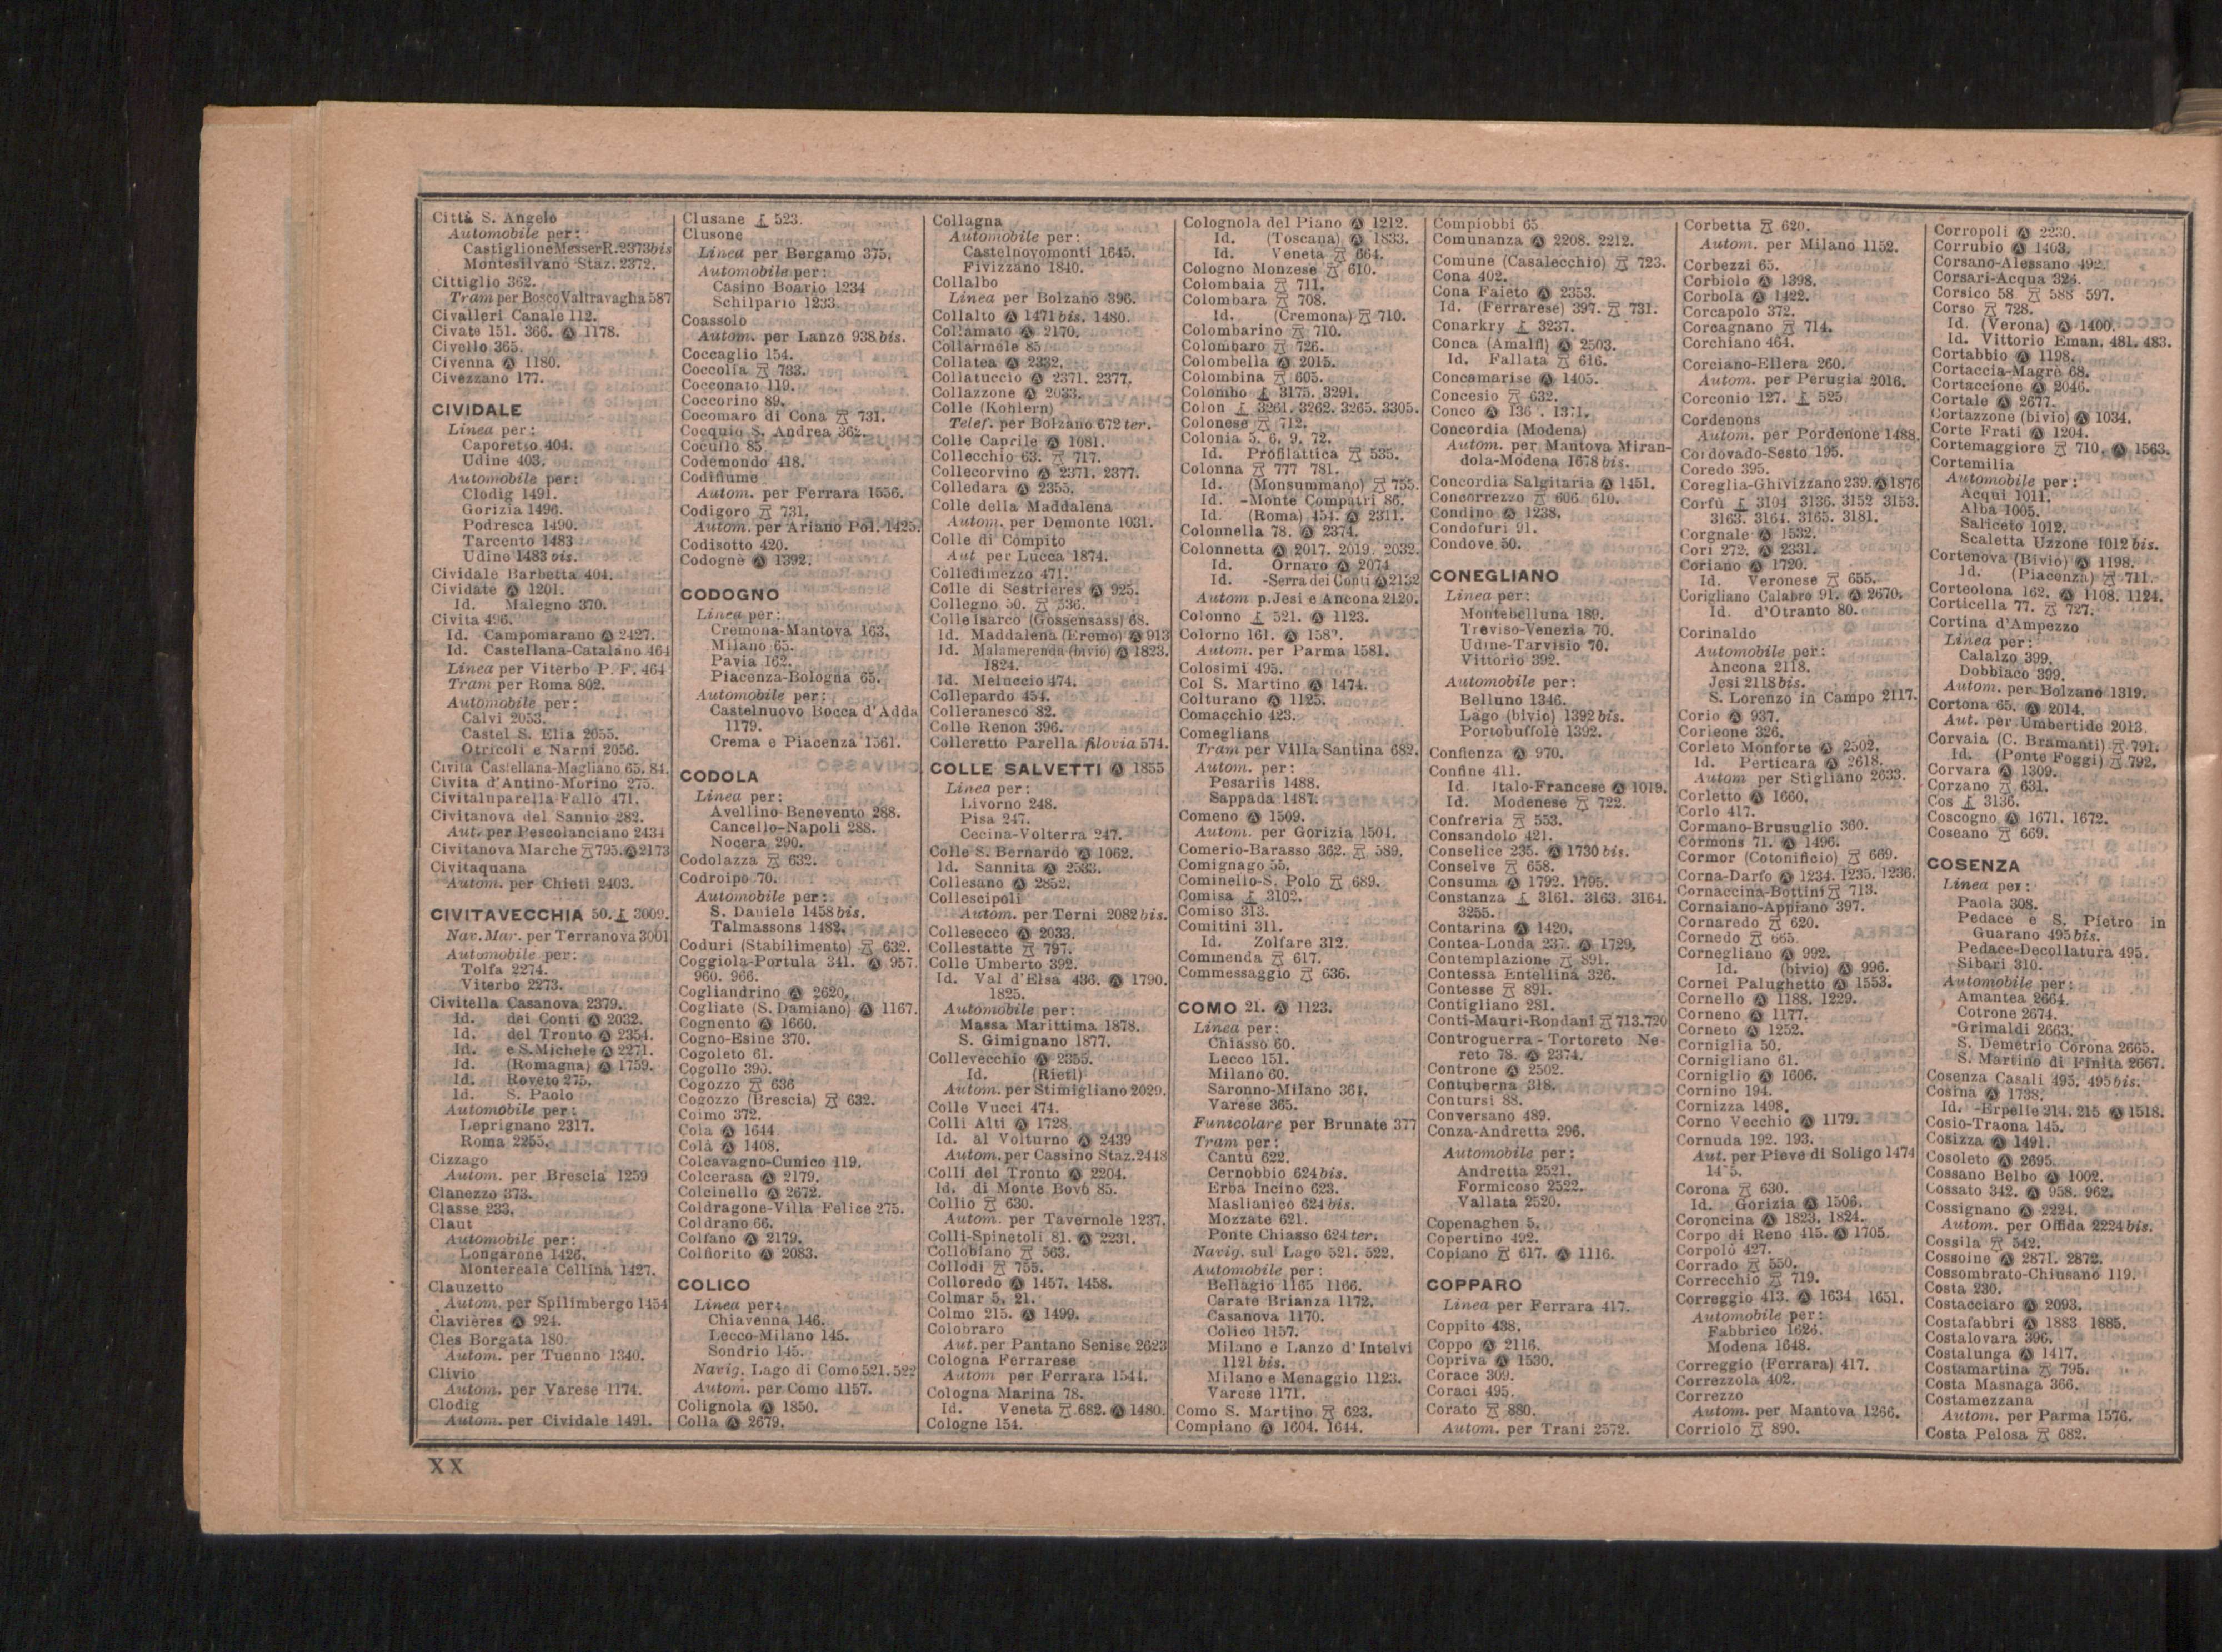 Città S. Angelo
Automobile per:
Castiglione Messer R. 2373 bis
Montesilvano Staz. 2372.
Cittiglio 362.
Tram per Bosco Valtravaglia 587
Civalleri Canale 112.
Civate 151. 366. Ⓐ 1178.
Civello 365.
Civenna Ⓐ 1180.
Civezzano 177.
CIVIDALE
Linea per:
Caporetto 404.
Udine 403.
Automobile per:
Clodig 1491.
Gorizia 1496.
Podresca 1490.
Tarcento 1483
Udine 1483 bis.
Cividale Barbetta 404.
Cividate Ⓐ 1201.
Id. Malegno 370.
Civita 496.
Id. Campomarano Ⓐ 2427.
Id. Castellana-Catalano 464
Linea per Viterbo P. F. 464
Tram per Roma 802.
Automobile per:
Calvi 2053.
Castel S. Elia 2055.
Otricoli e Narni 2056.
Civita Castellana-Magliano 65. 84.
Civita d'Antino-Morino 275.
Civitaluparella Fallo 471.
Civitanova del Sannio 282.
Aut. per Pescolanciano 2434
Civitanova Marche 795. Ⓐ 2173
Civitaquana
Autom. per Chieti 2403.
CIVITAVECCHIA 50. 3009.
Nav. Mar. per Terranova 3001
Automobile per:
Tolfa 2274.
Viterbo 2273.
Civitella Casanova 2379.
Id. dei Conti Ⓐ 2032.
Id. del Tronto Ⓐ 2354.
Id. e S. Michele Ⓐ 2271.
Id. (Romagna) Ⓐ 1759.
Id. Roveto 275.
Id. S. Paolo
Automobile per:
Leprignano 2317.
Roma 2255.
Cizzago
Autom. per Brescia 1259
Clanezzo 373.
Classe 233.
Claut
Automobile per:
Longarone 1426.
Montereale Cellina 1427.
Clauzetto
Autom. per Spilimbergo 1454
Clavières Ⓐ 924.
Cles Borgata 180.
Autom. per Tuenno 1340.
Clivio
Autom. per Varese 1174.
Clodig
Autom. per Cividale 1491.
Clusane 523.
Clusone
Linea per Bergamo 375.
Automobile per:
Casino Boario 1234
Schilpario 1233.
Coassolo
Autom. per Lanzo 938 bis.
Coccaglio 154.
Coccolia 733.
Cocconato 119.
Coccorino 89.
Cocomaro di Cona 731.
Cocquio S. Andrea 362.
Cocullo 85
Codemondo 418.
Codifiume
Autom. per Ferrara 1556.
Codigoro 731.
Autom. per Ariano Pol. 1425.
Codisotto 420.
Codognè Ⓐ 1392.
CODOGNO
Linea per:
Cremona-Mantova 163.
Milano 65.
Pavia 162.
Piacenza-Bologna 65.
Automobile per:
Castelnuovo Bocca d'Adda
1179.
Crema e Piacenza 1561.
CODOLA
Linea per:
Avellino-Benevento 288.
Cancello-Napoli 288.
Nocera 290.
Codolazza 632.
Codroipo 70.
Automobile per:
S. Daniele 1458 bis.
Talmassons 1482.
Coduri (Stabilimento) 632.
Coggiola-Portula 341. Ⓐ 957.
960. 966.
Cogliandrino Ⓐ 2620.
Cogliate (S. Damiano) Ⓐ 1167.
Cognento Ⓐ 1660.
Cogno-Esine 370.
Cogoleto 61.
Cogollo 390.
Cogozzo 636
Cogozzo (Brescia) 632.
Coimo 372.
Cola Ⓐ 1644.
Colà Ⓐ 1408.
Colcavagno-Cunico 119.
Colcerasa Ⓐ 2179.
Colcinello Ⓐ 2672.
Coldragone-Villa Felice 275.
Coldrano 66.
Colfano Ⓐ 2179.
Colfiorito Ⓐ 2083.
COLICO
Linea per:
Chiavenna 146.
Lecco-Milano 145.
Sondrio 145.
Navig. Lago di Como 521. 522
Autom. per Como 1157.
Colignola Ⓐ 1850.
Colla Ⓐ 2679.
Collagna
Automobile per:
Castelnovomonti 1645.
Fivizzano 1840.
Collalbo
Linea per Bolzano 396.
Collalto Ⓐ 1471 bis. 1480.
Collamato Ⓐ 2170.
Collarmele 85
Collatea Ⓐ 2332.
Collatuccio Ⓐ 2371. 2377.
Collazzone Ⓐ 2033.
Colle (Kohlern)
Telef. per Bolzano 672 ter.
Colle Caprile Ⓐ 1081.
Collecchio 63. 717.
Collecorvino Ⓐ 2371. 2377.
Colledara Ⓐ 2355.
Colle della Maddalena
Autom. per Demonte 1031.
Colle di Compito
Aut per Lucca 1874.
Colledimezzo 471.
Colle di Sestrieres Ⓐ 925.
Collegno 50. 536.
Colle Isarco (Gossensass) 68.
Id. Maddalena (Eremo) Ⓐ 913
Id. Malamerenda (bivio) Ⓐ 1823.
1824.
Id. Meluccio 474.
Collepardo 454.
Colleranesco 82.
Colle Renon 396.
Colleretto Parella filovia 574.
COLLE SALVETTI Ⓐ 1855
Linea per:
Livorno 248.
Pisa 247.
Cecina-Volterra 247.
Colle S. Bernardo Ⓐ 1062.
Id. Sannita Ⓐ 2533.
Collesano Ⓐ 2852.
Collescipoli
Autom. per Terni 2082 bis.
Collesecco Ⓐ 2033.
Collestatte 797.
Colle Umberto 392.
Id. Val d'Elsa 436. Ⓐ 1790.
1825.
Automobile per:
Massa Marittima 1878.
S. Gimignano 1877.
Collevecchio Ⓐ 2355.
Id. (Rieti)
Autom. per Stimigliano 2029.
Colle Vucci 474.
Colli Alti Ⓐ 1728
Id. al Volturno Ⓐ 2439
Autom. per Cassino Staz. 2448
Colli del Tronto Ⓐ 2204.
Id. di Monte Bove 85.
Collio 630.
Autom. per Tavernole 1237.
Colli-Spinetoli 81. Ⓐ 2231.
Collobiano 563.
Collodi 755.
Colloredo Ⓐ 1457. 1458.
Colmar 5. 21.
Colmo 215. Ⓐ 1499.
Colobraro
Aut. per Pantano Senise 2623
Cologna Ferrarese
Autom per Ferrara 1544.
Cologna Marina 78.
Id. Veneta 682. Ⓐ 1480.
Cologne 154.
Colognola del Piano Ⓐ 1212.
Id. (Toscana) Ⓐ 1833.
Id. Veneta 664.
Cologno Monzese 610.
Colombaia 711.
Colombara 708.
Id. (Cremona) 710.
Colombarino 710.
Colombaro 726.
Colombella Ⓐ 2015.
Colombina 605.
Colombo 3175. 3291.
Colon 3261. 3262. 3265. 3305.
Colonese 712.
Colonia 5. 6. 9. 72.
Id. Profilattica 535.
Colonna 777 781.
Id. (Monsummano) 755.
Id. -Monte Compatri 86.
Id. (Roma) 454. Ⓐ 2311.
Colonnella 78. Ⓐ 2374.
Colonnetta Ⓐ 2017. 2019. 2032.
Id. Ornaro Ⓐ 2074
Id. -Serra dei Conti Ⓐ 2132
Autom p. Jesi e Ancona 2120.
Colonno 521. Ⓐ 1123.
Colorno 161. Ⓐ
Autom. per Parma 1581.
Colosimi 495.
Col S. Martino Ⓐ 1474.
Colturano Ⓐ 1125.
Comacchio 423.
Comeglians
Tram per Villa Santina 682.
Autom. per:
Pesariis 1488.
Sappada 1487.
Comeno Ⓐ 1509.
Autom. per Gorizia 1501.
Comerio-Barasso 362. 589.
Comignago 55.
Cominello-S. Polo 689.
Comisa 3102.
Comiso 313.
Comitini 311.
Id. Zolfare 312.
Commenda 617.
Commessaggio 636.
COMO 21. Ⓐ 1123.
Linea per:
Chiasso 60.
Lecco 151.
Milano 60.
Saronno-Milano 361.
Varese 365.
Funicolare per Brunate 377
Tram per:
Cantù 622.
Cernobbio 624 bis.
Erba Incino 623.
Maslianico 624 bis.
Mozzate 621.
Ponte Chiasso 624 ter.
Navig. sul Lago 521. 522.
Automobile per:
Bellagio 1165 1166.
Carate Brianza 1172.
Casanova 1170.
Colico 1157.
Milano e Lanzo d'Intelvi
1121 bis.
Milano e Menaggio 1123.
Varese 1171.
Como S. Martino 623.
Compiano Ⓐ 1604. 1644.
Compiobbi 65
Comunanza Ⓐ 2208. 2212.
Comune (Casalecchio) 723.
Cona 402.
Cona Faieto Ⓐ 2353.
Id. (Ferrarese) 397. 731.
Conarkry 3237.
Conca (Amalfi) Ⓐ 2503.
Id. Fallata 616.
Concamarise Ⓐ 1405.
Concesio 632.
Conco Ⓐ 1371.
Concordia (Modena)
Autom. per Mantova Miran-
dola-Modena 1678 bis.
Concordia Salgitaria Ⓐ 1451.
Concorrezzo 606 610.
Condino Ⓐ 1238.
Condofuri 91.
Condove 50.
CONEGLIANO
Linea per:
Montebelluna 189.
Treviso-Venezia 70.
Udine-Tarvisio 70.
Vittorio 392.
Automobile per:
Belluno 1346.
Lago (bivio) 1392 bis.
Portobuffolè 1392.
Confienza Ⓐ 970.
Confine 411.
Id. Italo-Francese Ⓐ 1019.
Id. Modenese 722.
Confreria 553.
Consandolo 421.
Conselice 235. Ⓐ 1730 bis.
Conselve 658.
Consuma Ⓐ 1792. 1795.
Constanza 3161. 3163. 3164.
3255.
Contarina Ⓐ 1420.
Contea-Londa 237. Ⓐ 1729.
Contemplazione 891.
Contessa Entellina 326.
Contesse 891.
Contigliano 281.
Conti-Mauri-Rondani 713. 720
Controguerra - Tortoreto Ne-
reto 78. Ⓐ 2374.
Controne Ⓐ 2502.
Contuberna 318.
Contursi 88.
Conversano 489.
Conza-Andretta 296.
Automobile per:
Andretta 2521.
Formicoso 2522.
Vallata 2520.
Copenaghen 5.
Copertino 492.
Copiano 617. Ⓐ 1116.
COPPARO
Linea per Ferrara 417.
Coppito 438.
Coppo Ⓐ 2116.
Copriva Ⓐ 1530.
Corace 309.
Coraci 495.
Corato 880.
Autom. per Trani 2572.
Corbetta 620.
Autom. per Milano 1152.
Corbezzi 65.
Corbiolo Ⓐ 1398.
Corbola Ⓐ 1422.
Corcapolo 372.
Corcagnano 714.
Corchiano 464.
Corciano-Ellera 260.
Autom. per Perugia 2016.
Corconio 127. 525
Cordenons
Autom. per Pordenone 1488.
Cordovado-Sesto 195.
Coredo 395.
Coreglia-Ghivizzano 239. Ⓐ 1876
Corfù 3104 3136. 3152 3153.
3163. 3164. 3165. 3181.
Corgnale Ⓐ 1532.
Cori 272. Ⓐ 2331.
Coriano Ⓐ 1720.
Id. Veronese 655.
Corigliano Calabro 91. Ⓐ 2670.
Id. d'Otranto 80.
Corinaldo
Automobile per:
Ancona 2118.
Jesi 2118 bis.
S. Lorenzo in Campo 2117.
Corio Ⓐ 937.
Corleone 326.
Corleto Monforte Ⓐ 2502.
Id. Perticara Ⓐ 2618.
Autom per Stigliano 2633.
Corletto Ⓐ 1660.
Corlo 417.
Cormano-Brusuglio 360.
Cormons 71. Ⓐ 1496.
Cormor (Cotonificio) 669.
Corna-Darfo Ⓐ 1234. 1235. 1236.
Cornaccina-Bottini 713.
Cornaiano-Appiano 397.
Cornaredo 620.
Cornedo 665.
Cornegliano Ⓐ 992.
Id. (bivio) Ⓐ 996.
Cornei Palughetto Ⓐ 1553.
Cornello Ⓐ 1188. 1229.
Corneno Ⓐ 1177.
Corneto Ⓐ 1252.
Corniglia 50.
Cornigliano 61.
Corniglio Ⓐ 1606.
Cornino 194.
Cornizza 1498.
Corno Vecchio Ⓐ 1179.
Cornuda 192. 193.
Aut. per Pieve di Soligo 1474
Corona 630.
Id. Gorizia Ⓐ 1506.
Coroncina Ⓐ 1823. 1824.
Corpo di Reno 415. Ⓐ 1705.
Corpolò 427.
Corrado 550.
Correcchio 719.
Correggio 413. Ⓐ 1634 1651.
Automobile per:
Fabbrico 1626.
Modena 1648.
Correggio (Ferrara) 417.
Correzzola 402.
Correzzo
Autom. per Mantova 1266.
Corriolo 890.
Corropoli Ⓐ 2230.
Corrubio Ⓐ 1403.
Corsano-Alessano 492.
Corsari-Acqua 326.
Corsico 58 588 597.
Corso 728.
Id. (Verona) Ⓐ 1400.
Id. Vittorio Eman. 481. 483.
Cortabbio Ⓐ 1198.
Cortaccia-Magrè 68.
Cortaccione Ⓐ 2046.
Cortale Ⓐ 2677.
Cortazzone (bivio) Ⓐ 1034.
Corte Frati Ⓐ 1204.
Cortemaggiore 710. Ⓐ 1563.
Cortemilia
Automobile per:
Acqui 1011.
Alba 1005.
Saliceto 1012.
Scaletta Uzzone 1012 bis.
Cortenova (Bivio) Ⓐ 1198.
Id. (Piacenza) 711.
Corteolona 162. Ⓐ 1108. 1124.
Corticella 77. 727.
Cortina d'Ampezzo
Linea per:
Calalzo 399.
Dobbiaco 399.
Autom. per Bolzano 1319.
Cortona 65. Ⓐ 2014.
Aut. per Umbertide 2013
Corvaia (C. Bramanti) 791.
Id. (Ponte Foggi) 792.
Corvara Ⓐ 1309.
Corzano 631.
Cos 3136.
Coscogno Ⓐ 1671. 1672.
Coseano 669.
COSENZA
Linea per:
Paola 308.
Pedace e S. Pietro in
Guarano 495 bis.
Pedace-Decollatura 495.
Sibari 310.
Automobile per:
Amantea 2664.
Cotrone 2674.
Grimaldi 2663.
S. Demetrio Corona 2665.
S. Martino di Finita 2667.
Cosenza Casali 495. 495 bis.
Cosina Ⓐ 1738.
Id. -Erpelle 214. 215 Ⓐ 1518.
Cosio-Traona 145.
Cosizza Ⓐ 1491.
Cosoleto Ⓐ 2695.
Cossano Belbo Ⓐ 1002.
Cossato 342. Ⓐ 958. 962.
Cossignano Ⓐ 2224.
Autom. per Offida 2224 bis.
Cossila 542.
Cossoine Ⓐ 2871. 2872.
Cossombrato-Chiusano 119.
Costa 230.
Costacciaro Ⓐ 2093.
Costafabbri Ⓐ 1883 1885.
Costalovara 396.
Costalunga Ⓐ 1417.
Costamartina 795.
Costa Masnaga 366.
Costamezzana
Autom. per Parma 1576.
Costa Pelosa 682.
XX